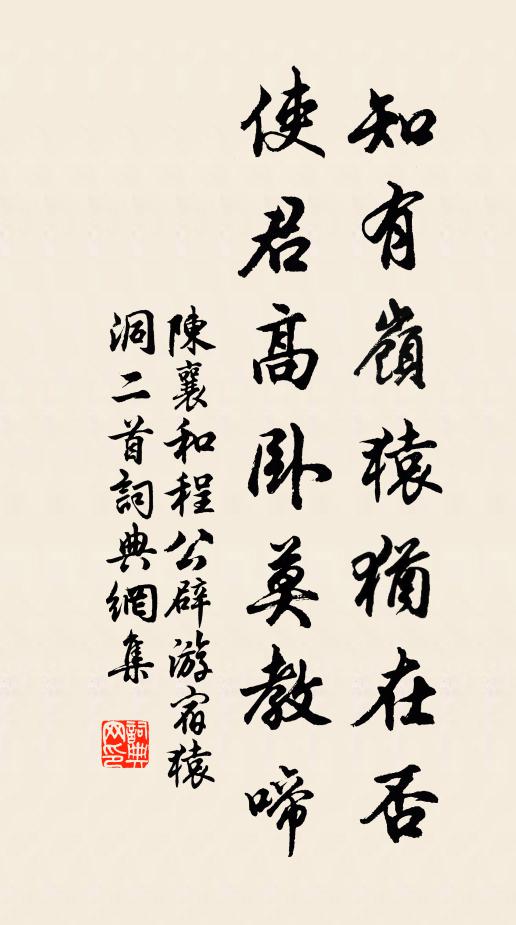 知有嶺猿猶在否
使君高臥莫教啼
陳襄和程公辟游宿猿
洞二首詞典網集
詞典
网印